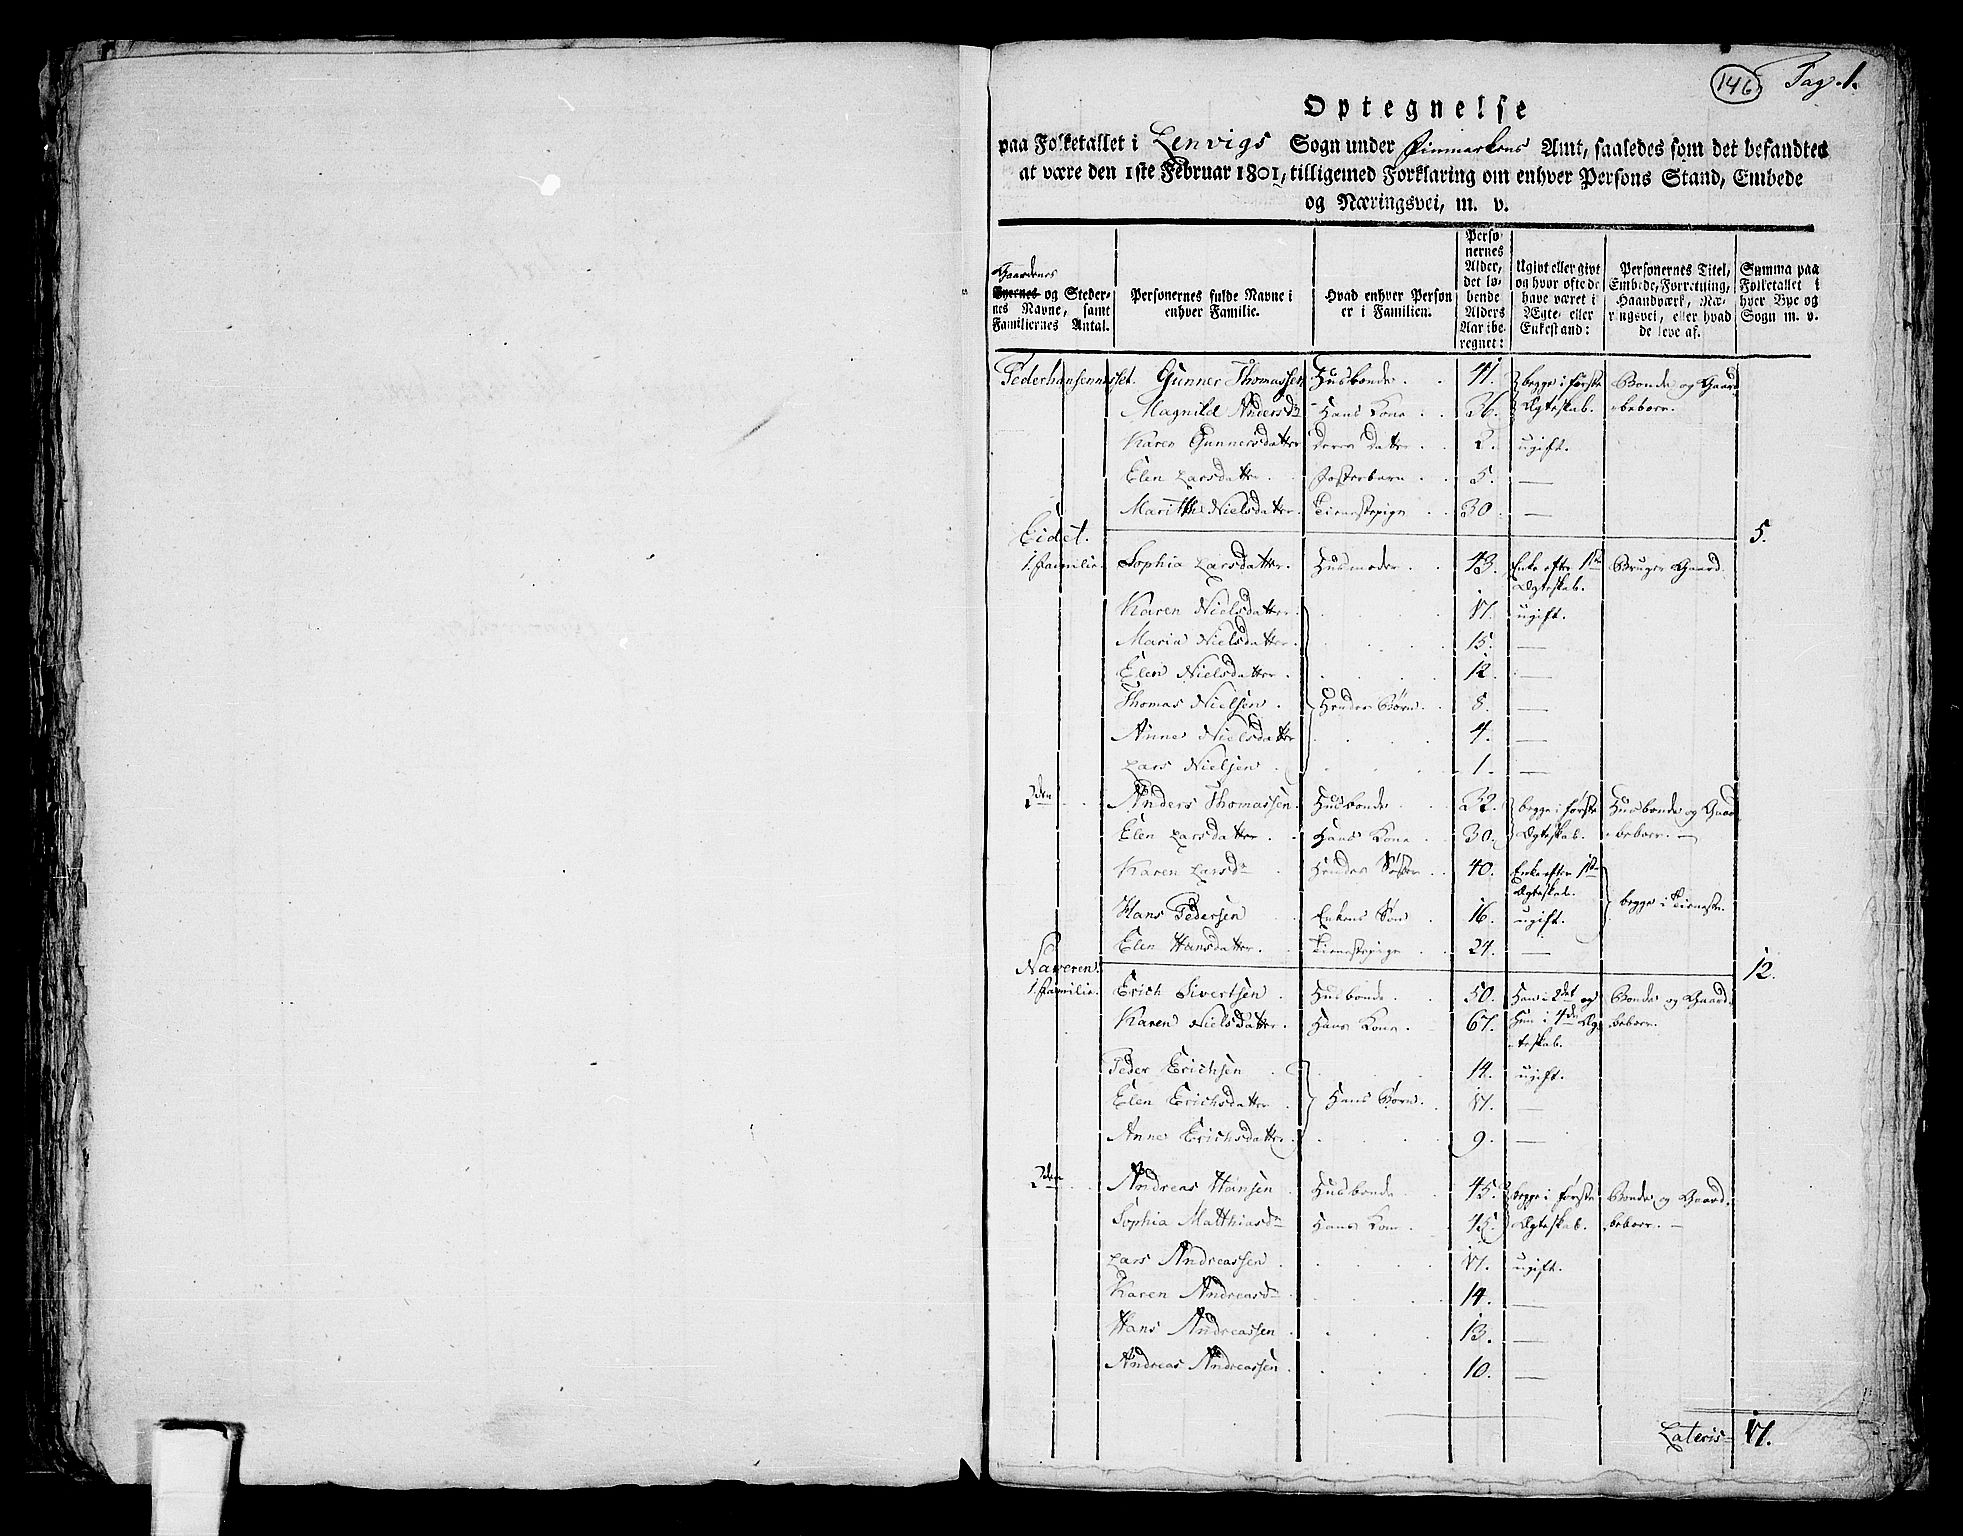 146 Pag. 1.
Optegnelse
paa Folketallet i Lenvigs Sogn under Finmarkens Amt, saaledes som det befandtes
at være den 1ste Februar 1801, tilligemed Forklaring om enhver Persons Stand, Embede
og Næringsvei, m. v.
Gaardenes
Byernes og Steder-
nes Navne, samt
Familiernes Antal.
Personernes fulde Navne i
enhver Familie.
Hvad enhver Person
er i Familien.
Perso-
nernes
Alder,
det lø-
bende
Alders
Aar ibe-
regnet:
Ugivt eller givt
og hvor ofte de
have været i
Ægte- eller
Enkestand:
Personernes Titel,
Embede, Forretning,
Haandværk, Næ-
ringsvei, eller hvad
de leve af.
Summa paa
Folketallet i
hver Bye og
Sogn m. v.
Pederhansennæset. Gunner Thomassen Husbonde. 41. begge i første Bonde og Gaard
Magnild Andersdr Hans Kone 36. Ægteskab. beboer.
Karen Gunnersdatter Deres Datter 2. ugift.
Elen Larsdatter Fosterbarn 5. —
Marithe Nielsdatter. Tienestepige 30. —
Eidet. 5.
1. Familie. Sophia Larsdatter. Husmoder. 43. Enke efter 1ste Bruger Gaard
Ægteskab.
Karen Nielsdatter. 17. ugift.
Maria Nielsdatter. 15. —
Elen Nielsdatter. 12. —
Thomas Nielsen. Hendes Børn. 8. —
Anne Nielsdatter 4. —
Lars Nielsen. 1. —
2den Anders Thomassen. Husbonde 32. begge i første Husbonde og Gaard
Elen Larsdatter. Hans Kone 30. Ægteskab. beboer. —
Karen Larsdr Hendes Søster 40. Enke efter 1ste
Ægteskab.
Hans Pedersen Enkens Søn 16. ugift. begge i Tieneste.
Elen Hansdatter. Tienestepige 24. —
Naveren. 12.
1. Familie. Erich Sivertsen. Husbonde. 50. Han i 2det og Bonde og Gaard
Karen Nielsdatter. Hans Kone. 67. Hun i 4de Æg- beboer.
teskab.
Peder Erichsen 14. ugift.
Elen Erichsdatter. Hans Børn. 17. —
Anne Erichsdatter. 9. —
2den Andreas Hansen Husbonde 45. begge i første Bonde og Gaard
Sophia Matthiasdr Hans Kone 45. Ægteskab. beboer. —
Lars Andreassen. 17. ugift.
Karen Andreasdr 14. —
Hans Andreassen 13. —
Andreas Andreassen 10. —
Lateris 17.